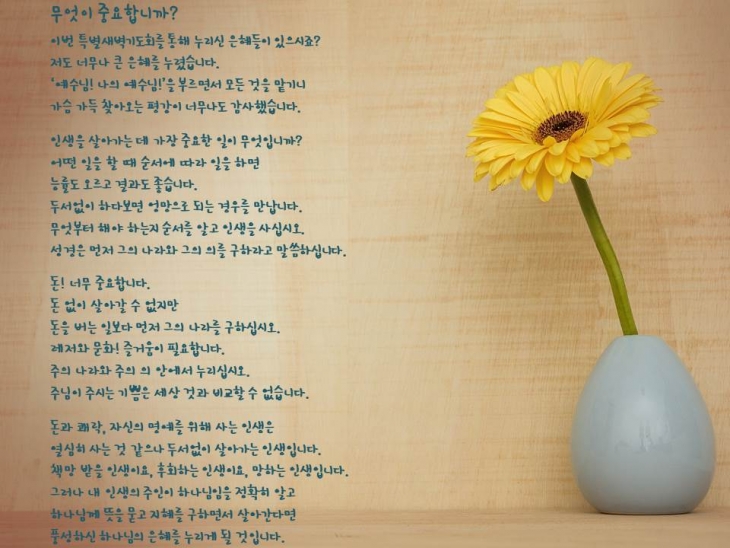 무엇이 중요합니까?
이번 특별새벽기도회를 통해 누리신 은혜들이 있으시죠?
저도 너무나 큰 은혜를 누렸습니다.
'예수님! 나의 예수님!'을 부르면서 모든 것을 맡기니
가슴 가득 찾아오는 평강이 너무나도 감사했습니다.
인생을 살아가는 데 가장 중요한 일이 무엇입니까?
어떤 일을 할 때 순서에 따라 일을 하면
능률도 오르고 결과도 좋습니다.
두서없이 하다보면 엉망으로 되는 경우를 만납니다.
무엇부터 해야 하는지 순서를 알고 인생을 사십시오.
성경은 먼저 그의 나라와 그의 의를 구하라고 말씀하십니다.
돈! 너무 중요합니다.
돈 없이 살아갈 수 없지만
돈을 버는 일보다 먼저 그의 나라를 구하십시오.
레저와 문화! 즐거움이 필요합니다.
주의 나라와 주의 의 안에서 누리십시오.
주님이 주시는 기쁨은 세상 것과 비교할 수 없습니다.
돈과 쾌락, 자신의 명예를 위해 사는 인생은
열심히 사는 것 같으나 두서없이 살아가는 인생입니다.
책망 받을 인생이요, 후회하는 인생이요, 망하는 인생입니다.
그러나 내 인생의 주인이 하나님임을 정확히 알고
하나님께 뜻을 묻고 지혜를 구하면서 살아간다면
풍성하신 하나님의 은혜를 누리게 될 것입니다.